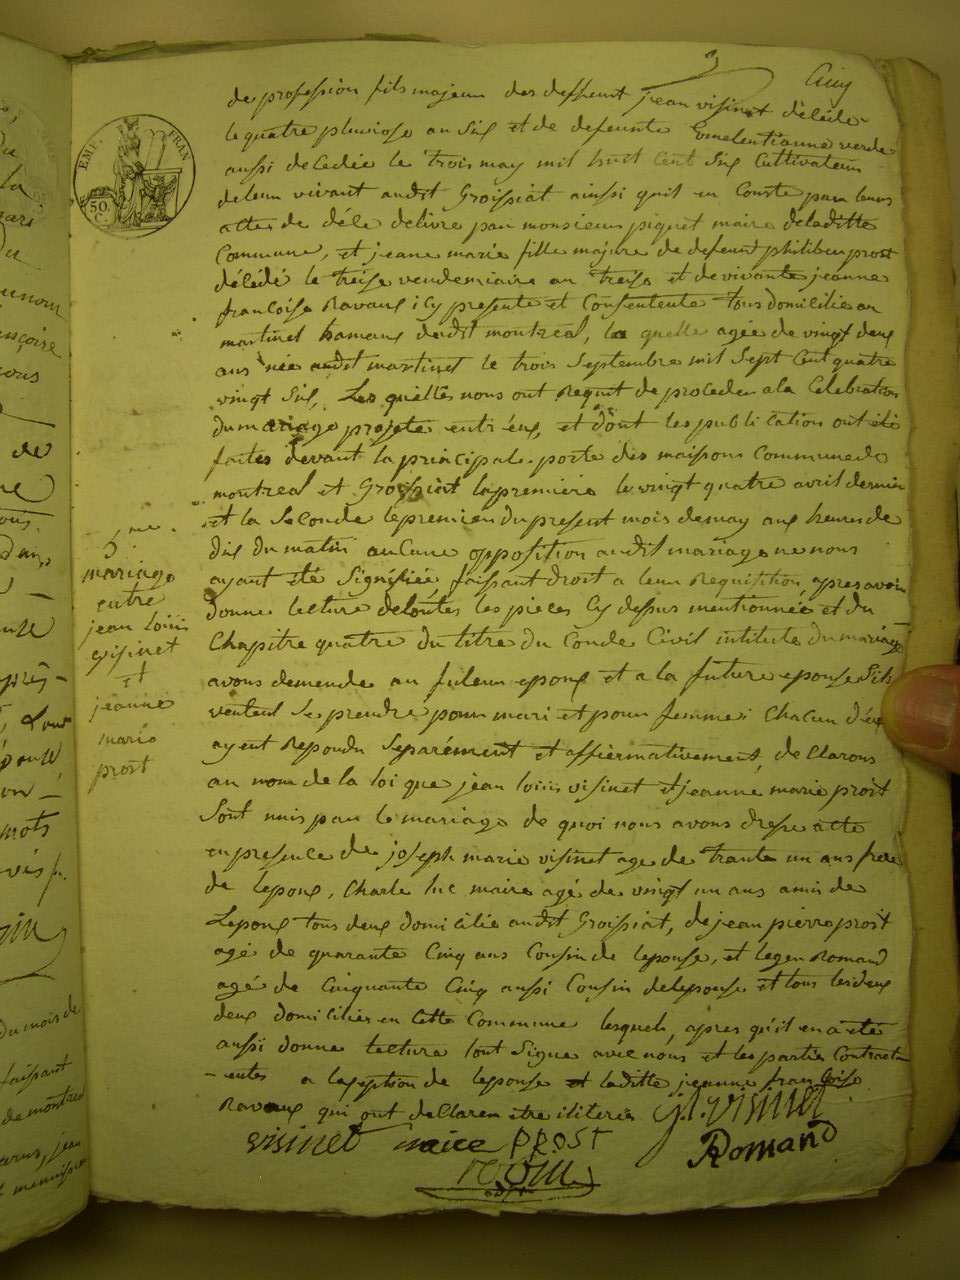 3
Cinq
de profession fils majeur des deffunt jean visinet décéde
le quatre pluviose an six et de defeunte verde
aussi decedée le trois may mil huit cent six Cultivateurs
de leur vivant audit Groissiat ainsi quil en Conste par leurs
actes de décé délivré par monsieur piquet maire de laditte
Commune, et jeane marie fille majure de defeunt philibeu prost
décédé le treise vendemiaire an treise et de vivante jeanne
francoise Ravaux icy presente et Consentente tous domicilié au
martinet hamaux dudit montreal, la quelle agée de vingt deux
ans née audit martinet le trois Septembre mil Sept Cent quatre
vingt Six, Les quelles nous ont Requit de proceder a la Celebration
du mariage projeté entr'eux, et dont les publication ont été
faites devant la principale porte des maisons Commune de
montreal et Groissiat la premiere le vingt quatre avril dernier
et la Seconde le premier du present mois de may aux heures de
dix du matin aucune opposition audit mariage ne nous
ayant été Signifiée faissant droit a leur Requisition, apres avoir
donne lecture de toutes les pieces Cy dessus mentionnée et du
Chapitre quatre du titre du Conde Civil intitulé du mariage
avons demende au futeur epoux et a la future epouse Sils
veulent Se prendre pour mari et pour femme; Chacun d'eux
ayent Repondu Separément et affiermativement, de Clarons
au nom de la loi que jean loiiis visinet et jeanne marie prost
Sont unis par le mariage de quoi nous avons dresse acte
en presence de joseph marie visinet age de trante un ans frere
de lepoux, Charle luc maire agé de vingt un ans amis de
Lepoux tous deux domicilié audit Groissiat, de jean pierre prost
agé de quarante Cinq ans Cousin de lepouse, et Romand
agé de Cinquante Cinq aussi Cousin de lepouse et tous les deux
deux domiciliés en Cette Commune lesquels, apres qu'il en a été
aussi donne lecture tout Signe avec nous et les parties Contract
-entes a laseption de lepouse et laditte jeanne francoise
Ravaux qui ont de Claren etre iliteries
J.L. visinet
visinet maire PROST
Romand
EMP. FRAN
50
C.
5me
mariage
entre
jean loiiis
visinet
et
jeanne
marie
prost